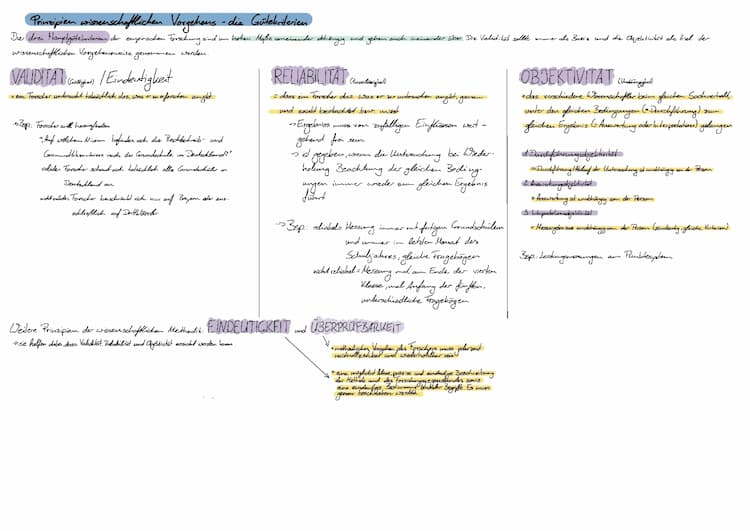 Prinzipien wissenschaftlichen Vorgehens - die Gütekriterien
Die drei Hauptgütekriterien der empirischen Forschung sind im hohen Maße voneinander abhängig und gehen auch ineinander über. Die Validität sollte immer als Basis und die Objektivität als Ziel der
wissenschaftlichen Vorgehensweise genommen werden.
VALIDITÄT (Gültigkeit) / Eindeutigkeit
• ein Forscher untersucht tatsächlich das, was er zu erforschen angibt
→ Bsp. Forscher will herausfinden
"Auf welchem Niveau befinden sich die Rechtschreib- und
Grammatikkenntnisse nach der Grundschule in Deutschland?"
valider Forscher schaut sich tatsächlich alle Grundschüler in
Deutschland an
nicht valider Forscher beschränkt sich nur auf Bayern oder aus-
schließlich auf
RELIABILITÄT (Zuverlässigkeit)
• dass ein Forscher das, was er zu untersuchen angibt, genau
und exakt beobachtet bzw. misst
→ Ergebnis muss von zufälligen Einflüssen weit-
gehend frei sein
→ ist gegeben, wenn die Untersuchung bei Wieder-
holung Beachtung der gleichen Beding-
ungen immer wieder zum gleichen Ergebnis
führt
→ Bsp. reliabel = Messung immer mit fertigen Grundschülern
und immer im letzten Monat des
Schuljahres, gleiche Fragebögen
nicht reliabel = Messung mal am Ende der vierten
Klasse, mal Anfang der fünften,
unterschiedliche Fragebögen
OBJEKTIVITÄT (Unabhängigkeit)
• dass verschiedene Wissenschaftler beim gleichen Sachverhalt
unter den gleichen Bedingungen (= Durchführung) zum
gleichen Ergebnis (= Auswertung oder Interpretation) gelangen
1. Durchführungsobjektivität
→ Durchführung/Ablauf der Untersuchung ist unabhängig von der Person
2. Auswertungsobjektivität
→ Auswertung ist unabhängig von der Person
3. Interpretationsobjektivität
→ Messergebnis unabhängig von der Person
Bsp. Leistungsmessungen am Punktesystem
Weitere Prinzipien der wissenschaftlichen Methodik: EINDEUTIGKEIT und ÜBERPRÜFBARKEIT
→ sie helfen dabei, dass Validität, Reliabilität und Objektivität erreicht werden kann
• methodisches Vorgehen des Forschers muss jederzeit
nachvollziehbar und wiederholbar sein
• eine möglichst klare, präzise und eindeutige Beschreibung
der Methode und des Forschungsgegenstandes sowie
eine eindeutige Bestimmung Begriffe. Es muss
genau beschrieben werden